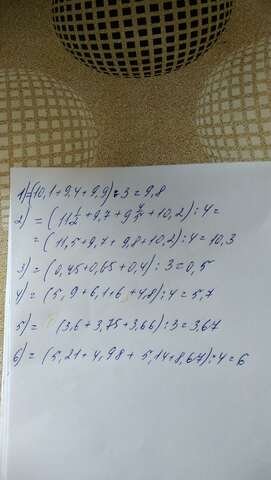 1) = (10,1+9,4+9,9) : 3 = 9,8
2) = (11 1/2 + 9,7 + 9 4/5 + 10,2) : 4 =
= (11,5+9,7+ 9,8+10,2) : 4 = 10,3
3) = (0,45+0,65+0,4) : 3 = 0,5
4) = (5,9+6,1+6+4,8) : 4 = 5,7
5) = (3,6+3,75+3,66) : 3 = 3,67
6) = (5,21+4,98+ 5,14+8,67) : 4 = 6